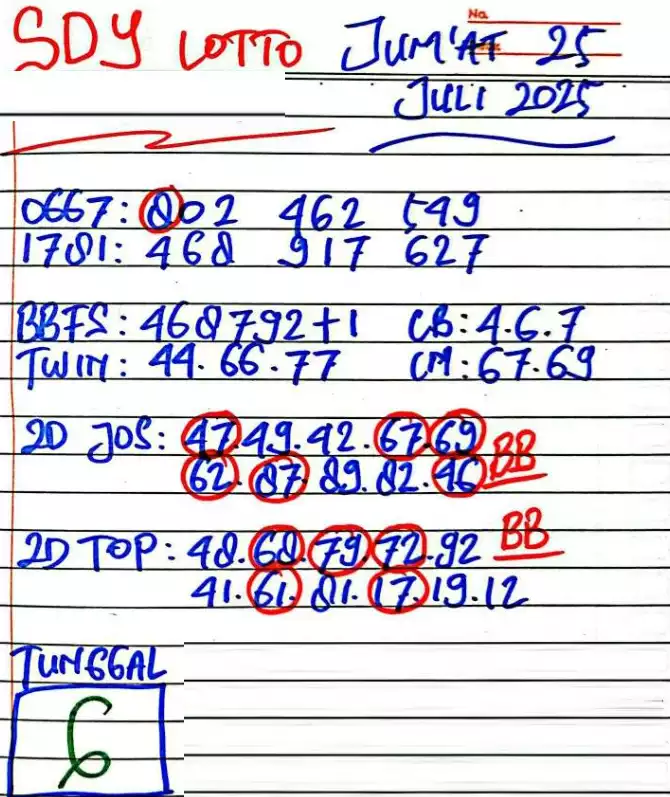 No
SDY LOTTO JUM'AT 25
JULI 2025
0667: 802 462 549
1781: 468 917 627
BBFS: 468792+1 CB: 4.6.7
TWIN: 44.66.77 CM: 67.69
2D JOS: 47.49.42.67.69
62.87.89.82.46 BB
2D TOP: 48.68.79.72.92 BB
41.61.81.17.19.12
TUNGGAL
6